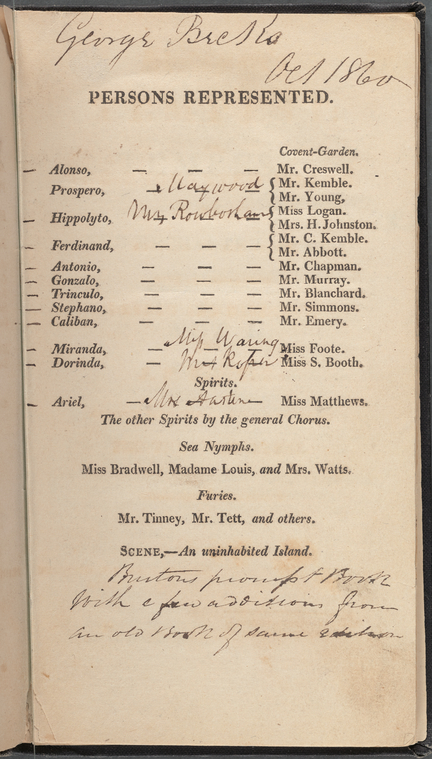 George Becks
Oct 1860
PERSONS REPRESENTED.
Covent-Garden.
— Alonso, — — — Mr. Creswell.
— Prospero, — Maywood { Mr. Kemble.
Mr. Young,
— Hippolyto, Mrs Rowbotham { Miss Logan.
Mrs. H. Johnston.
— Ferdinand, — — — { Mr. C. Kemble.
Mr. Abbott.
— Antonio, — — — Mr. Chapman.
— Gonzalo, — — — Mr. Murray.
— Trinculo, — — — Mr. Blanchard.
— Stephano, — — — Mr. Simmons.
— Caliban, — — — Mr. Emery.
— Miranda, — Miss Waring Miss Foote.
— Dorinda, — Miss S. Booth.
Spirits.
— Ariel, — Mrs Austin — Miss Matthews.
The other Spirits by the general Chorus.
Sea Nymphs.
Miss Bradwell, Madame Louis, and Mrs. Watts.
Furies.
Mr. Tinney, Mr. Tett, and others.
SCENE,—An uninhabited Island.
Burtons prompt Book
With a few additions from
an old Book of same edition